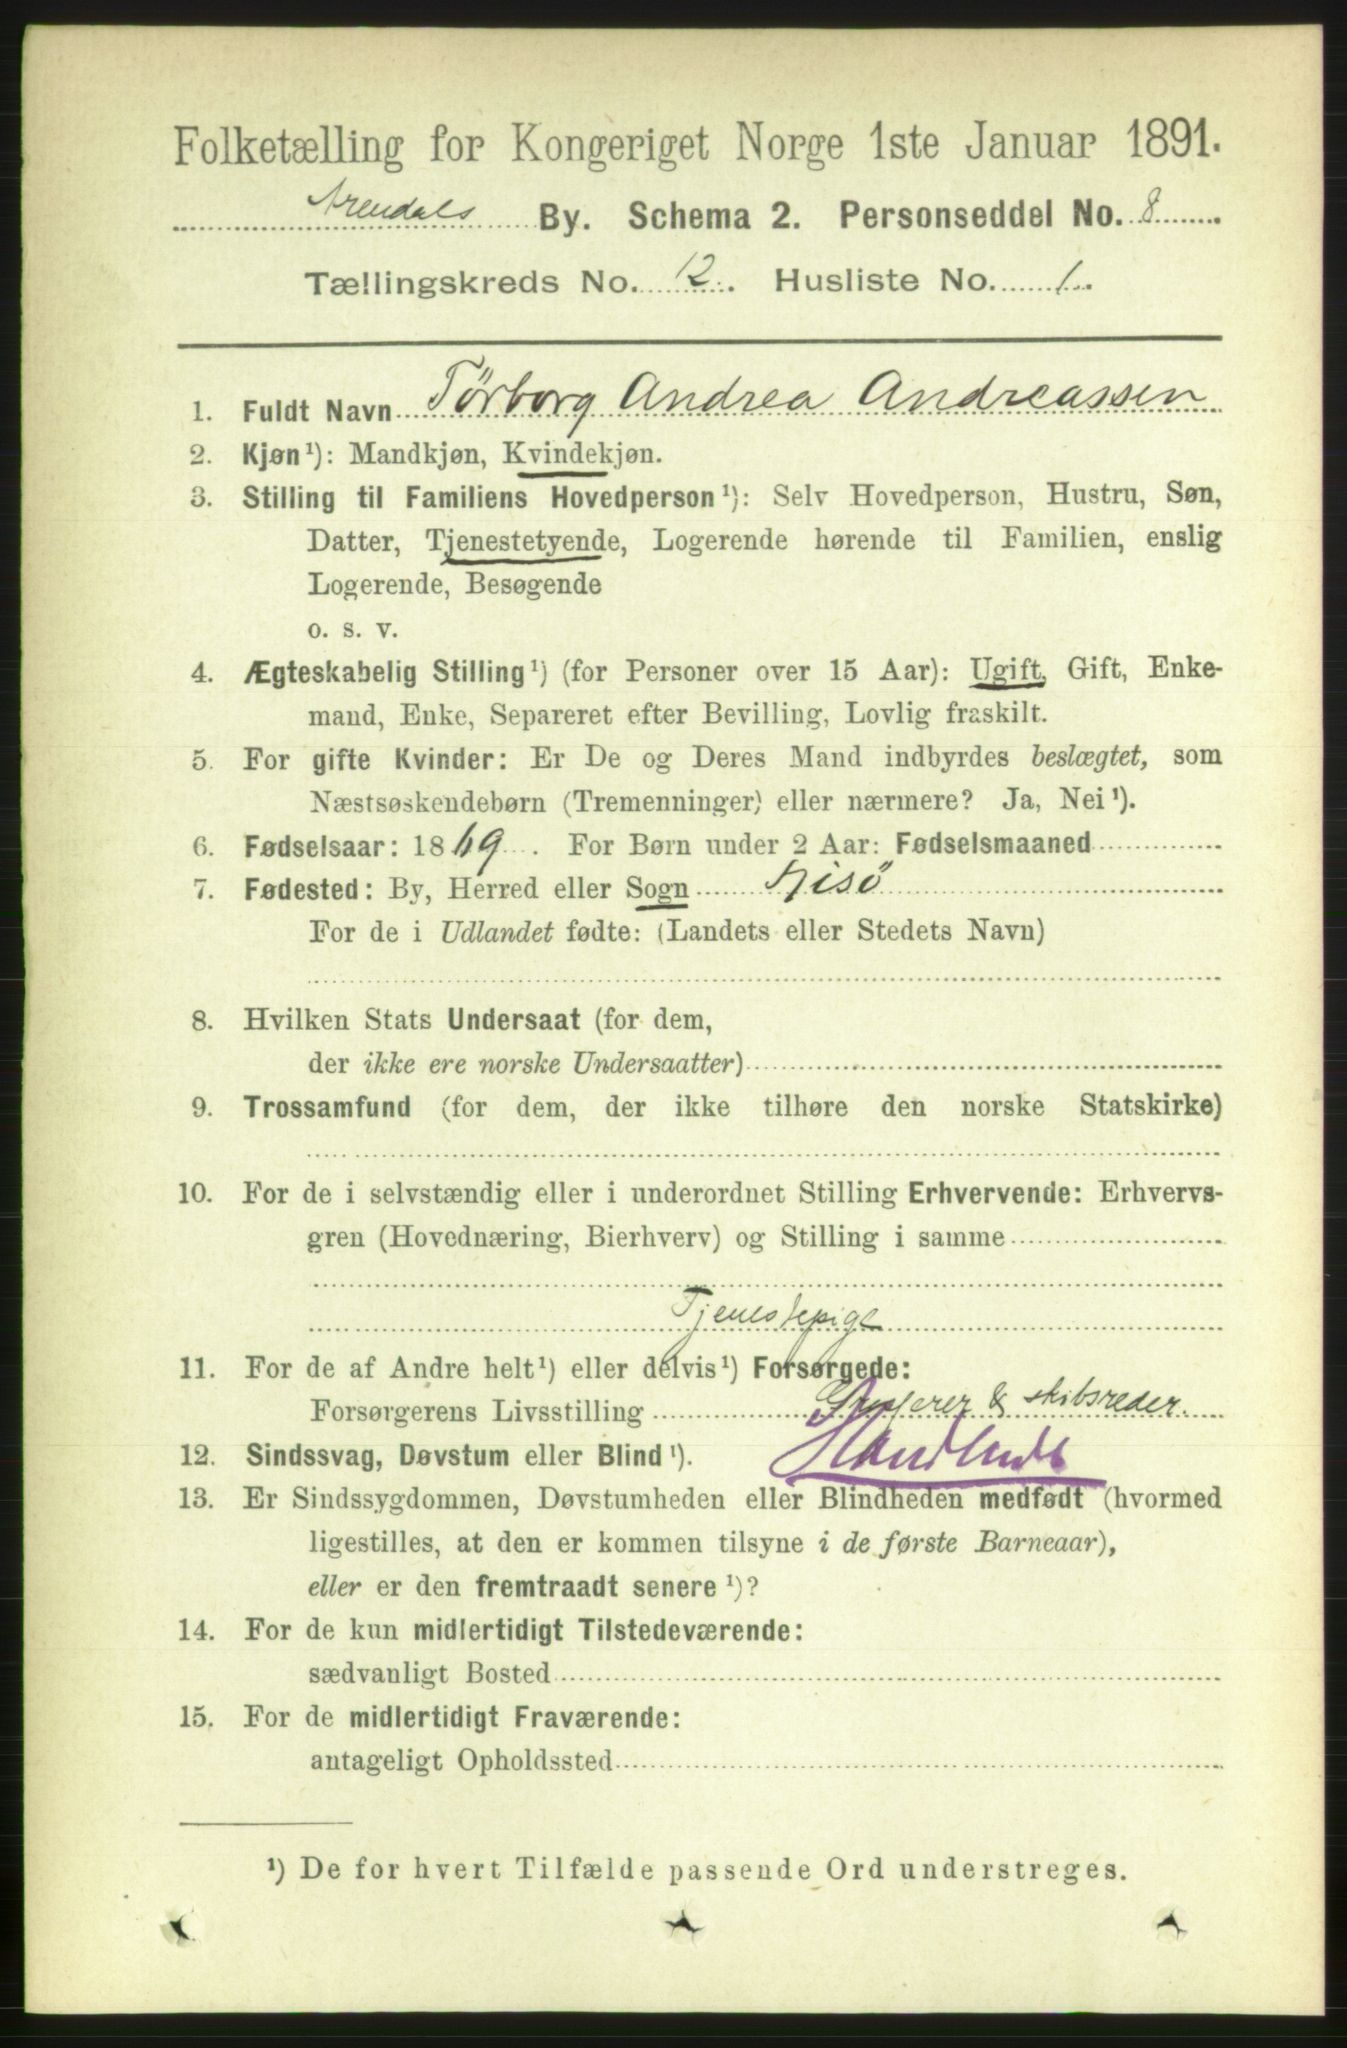 Folketælling for Kongeriget Norge 1ste Januar 1891.
Arendals By. Schema 2. Personseddel No. 8
Tællingskreds No. 12. Husliste No. 1.
1. Fuldt Navn Törborg Andrea Andreassen
2. Kjøn¹): Mandkjøn, Kvindekjøn.
3. Stilling til Familiens Hovedperson¹): Selv Hovedperson, Hustru, Søn,
Datter, Tjenestetyende, Logerende hørende til Familien, enslig
Logerende, Besøgende
o. s. v.
4. Ægteskabelig Stilling¹) (for Personer over 15 Aar): Ugift, Gift, Enke-
mand, Enke, Separeret efter Bevilling, Lovlig fraskilt.
5. For gifte Kvinder: Er De og Deres Mand indbyrdes beslægtet, som
Næstsøskendebørn (Tremenninger) eller nærmere? Ja, Nei¹).
6. Fødselsaar: 1869. For Børn under 2 Aar: Fødselsmaaned
7. Fødested: By, Herred eller Sogn Hisö
For de i Udlandet fødte: (Landets eller Stedets Navn)
8. Hvilken Stats Undersaat (for dem,
der ikke ere norske Undersaatter)
9. Trossamfund (for dem, der ikke tilhøre den norske Statskirke)
10. For de i selvstændig eller i underordnet Stilling Erhvervende: Erhvervs-
gren (Hovednæring, Bierhverv) og Stilling i samme
Tjenestepige
11. For de af Andre helt¹) eller delvis¹) Forsørgede:
Forsørgerens Livsstilling & skibsreder.
12. Sindssvag, Døvstum eller Blind¹). Handlende
13. Er Sindssygdommen, Døvstumheden eller Blindheden medfødt (hvormed
ligestilles, at den er kommen tilsyne i de første Barneaar),
eller er den fremtraadt senere¹)?
14. For de kun midlertidigt Tilstedeværende:
sædvanligt Bosted
15. For de midlertidigt Fraværende:
antageligt Opholdssted
¹) De for hvert Tilfælde passende Ord understreges.